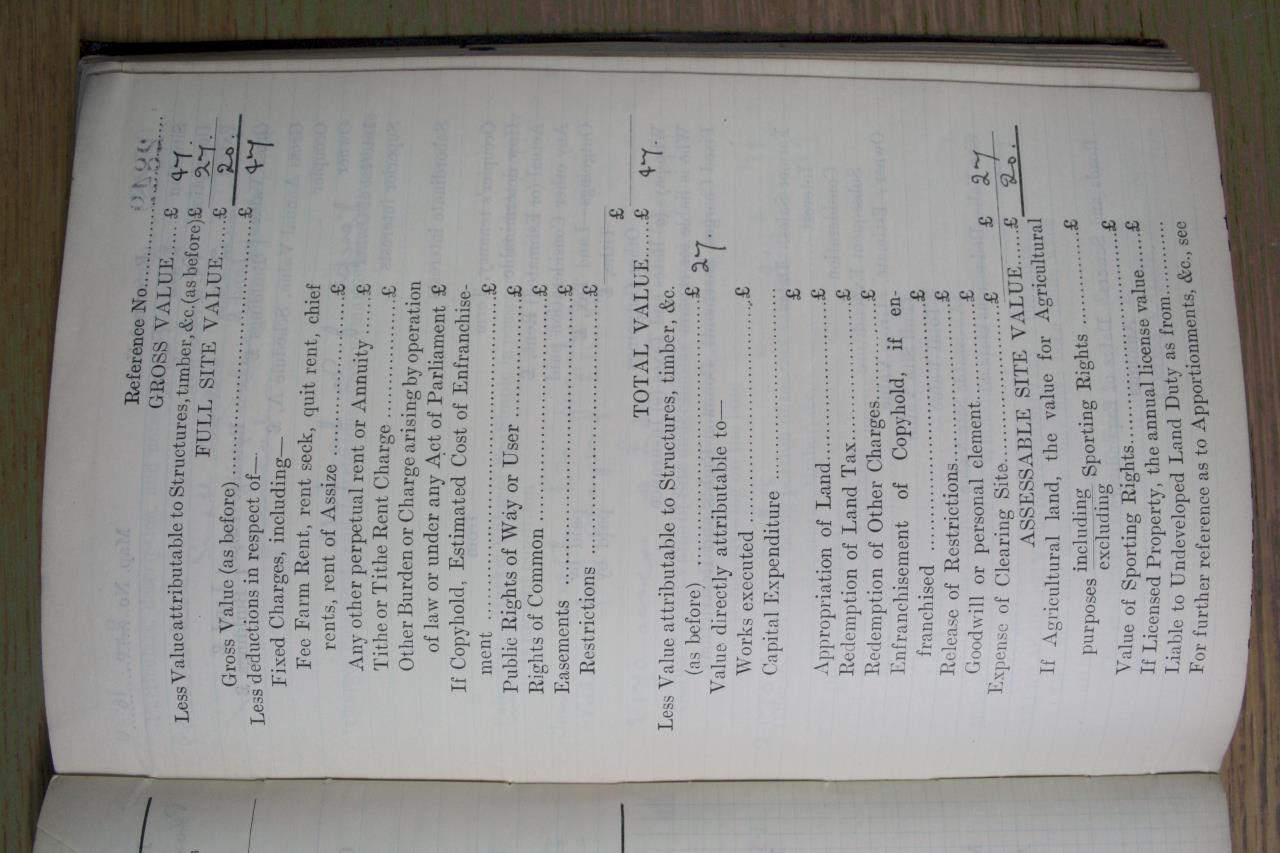 Reference No.
GROSS VALUE......£ 47.
Less Value attributable to Structures, timber, &c. (as before) £ 27.
FULL SITE VALUE.....£ 20.
Gross Value (as before)........£ 47
Less deductions in respect of—
Fixed Charges, including—
Fee Farm Rent, rent seck, quit rent, chief
rents, rent of Assize........£
Any other perpetual rent or Annuity......£
Tithe or Tithe Rent Charge........£
Other Burden or Charge arising by operation
of law or under any Act of Parliament £
If Copyhold, Estimated Cost of Enfranchise-
ment........£
Public Rights of Way or User........£
Rights of Common........£
Easements........£
Restrictions........£
£
TOTAL VALUE......£ 47.
Less Value attributable to Structures, timber, &c.
(as before)........£ 27.
Value directly attributable to—
Works executed........£
Capital Expenditure........
£
Appropriation of Land........£
Redemption of Land Tax........£
Redemption of Other Charges........£
Enfranchisement of Copyhold, if en-
franchised........£
Release of Restrictions........£
Goodwill or personal element........£
Expense of Clearing Site........£
£ 27
ASSESSABLE SITE VALUE....£ 20.
If Agricultural land, the value for Agricultural
purposes including Sporting Rights........£
excluding
Value of Sporting Rights........£
If Licensed Property, the annual license value......£
Liable to Undeveloped Land Duty as from........
For further reference as to Apportionments, &c., see